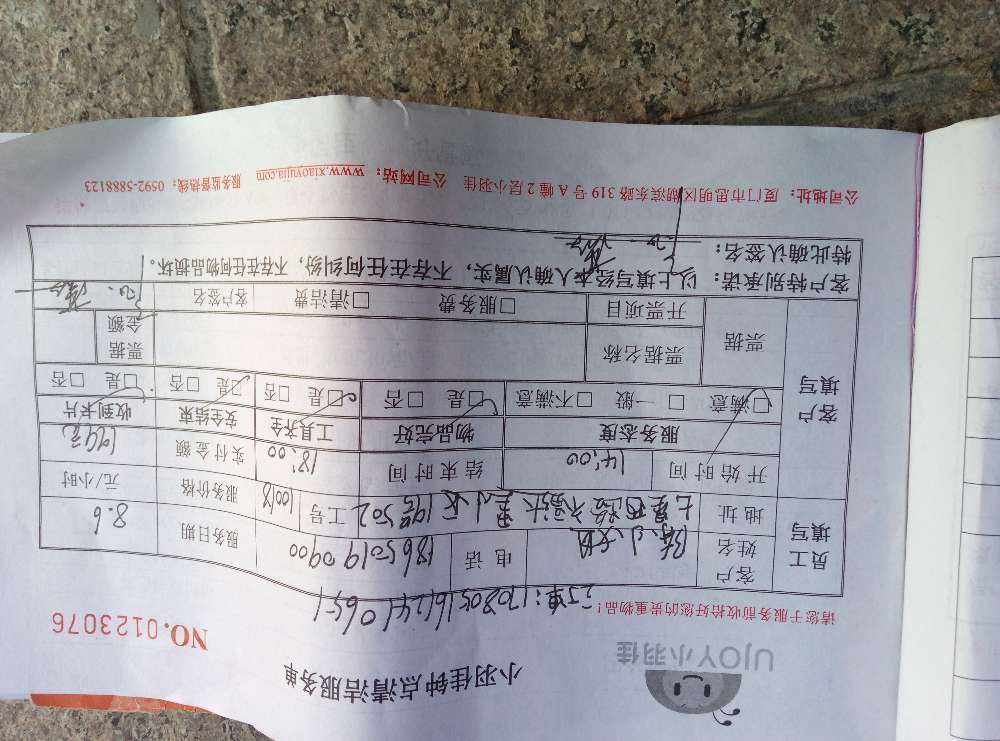 UJOY小羽佳
小羽佳钟点清洁服务单
NO.0123076
请您于服务前收拾好您的贵重物品！
订单：17080516124106451
员工填写 客户姓名 陈小姐 电话 18650190900 服务日期 8.6
地址 工号 10018 服务价格 元/小时
开始时间 14:00 结束时间 18:00 实付金额 144元
客户填写 服务态度 物品完好 工具齐全 安全结束 收到卡片
□满意 □一般 □不满意 □是 □否 □是 □否 □是 □否 □是 □否
票据 票据名称 票据金额
开票项目 □服务费 □清洁费 客户签名
客户特别承诺：以上填写经本人确认属实，不存在任何纠纷，不存在任何物品损坏。
特此确认签名：
公司地址：厦门市思明区湖滨东路319号A幢2层小羽佳 公司网站：www.xiaoyujia.com 服务监督热线：0592-5888123